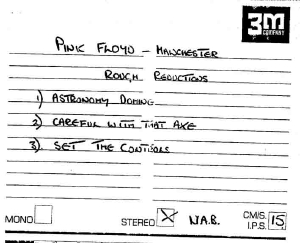 3M
COMPANY
PINK FLOYD - MANCHESTER
ROUGH REDUCTIONS
1) ASTRONOMY DOMINE
2) CAREFUL WITH THAT AXE
3). SET THE CONTROLS
MONO STEREO N.A.B. CM/S. I.P.S. 15